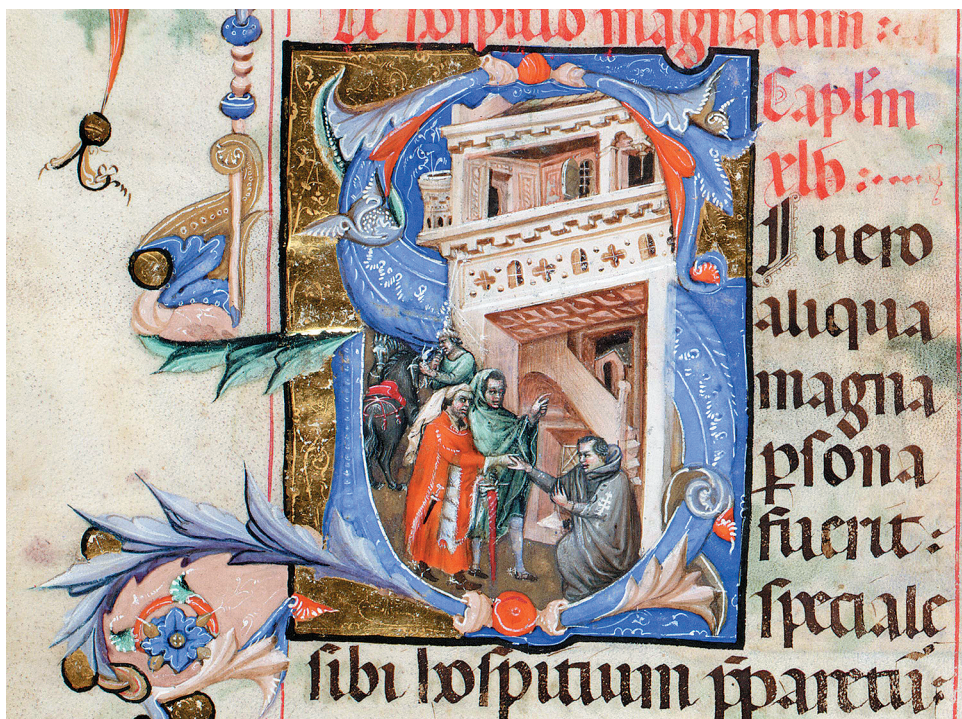 De hospitio magnatum :.
Caplm
xlv :....
SI uero
aliqua
magna
ꝑsona
fuerit :
speciale
sibi hospitium p̄paretū :